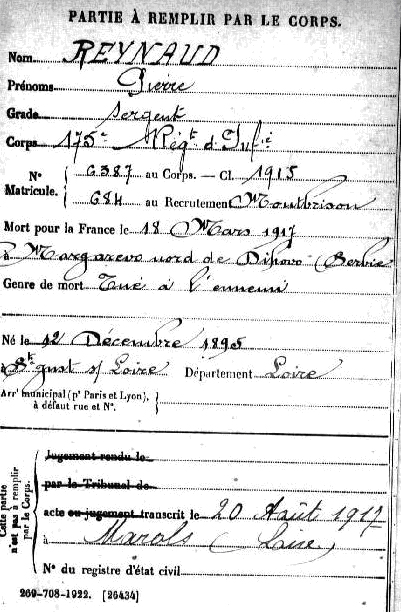 PARTIE À REMPLIR PAR LE CORPS.
Nom REYNAUD
Prénoms Pierre
Grade Sergent
Corps 175e Régt d'Infie
No Matricule. 6387 au Corps. — Cl. 1915
684 au Recrutement Montbrison
Mort pour la France le 18 Mars 1917
à Margarevo nord de Dihovo (Serbie
Genre de mort Tué à l'ennemi
Né le 12 Décembre 1895
à St Just s/ Loire Département Loire
Arrt municipal (pr Paris et Lyon),
à défaut rue et No.
Cette partie n'est pas à remplir par le Corps.
Jugement rendu le
par le Tribunal de
acte ou jugement transcrit le 20 Août 1917
à Marols (Loire)
No du registre d'état civil
269-708-1922. [26434]